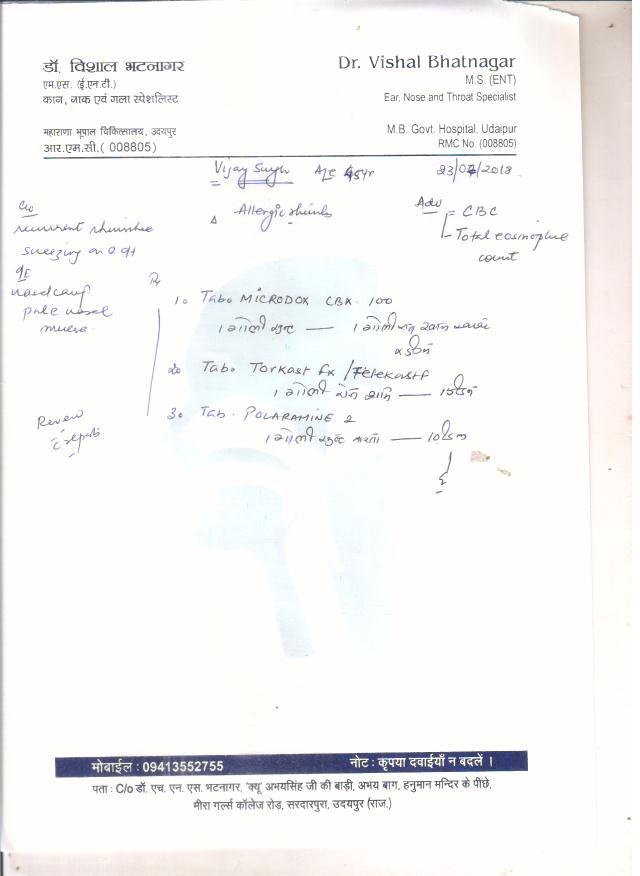 डॉ. विशाल भटनागर
एम.एस. (ई.एन.टी.)
कान, नाक एवं गला स्पेशलिस्ट
महाराणा भूपाल चिकित्सालय, उदयपुर
आर.एम.सी.( 008805)
Dr. Vishal Bhatnagar
M.S. (ENT)
Ear, Nose and Throat Specialist
M.B. Govt. Hospital, Udaipur
RMC No. (008805)
Vijay Singh
/2018
C/o
recurrent
sneezing
O/E
pale nasal
Allergic rhinitis
Adv
= CBC
Total eosinophil
count
Rx
1. Tab. MICRODOX LBX 100
1 गोली सुबह — 1 गोली
2. Tab. Torkast fx / Telekast f
1 गोली रोज शाम —
3. Tab. POLARAMINE 2
1 गोली सुबह — 10 दिन
Review
c reports
मोबाईल : 09413552755
नोट : कृपया दवाईयाँ न बदलें ।
पता : C/o डॉ. एच. एन. एस. भटनागर, 'क्यू' अभयसिंह जी की बाड़ी, अभय बाग, हनुमान मन्दिर के पीछे,
मीरा गर्ल्स कॉलेज रोड़, सरदारपुरा, उदयपुर (राज.)